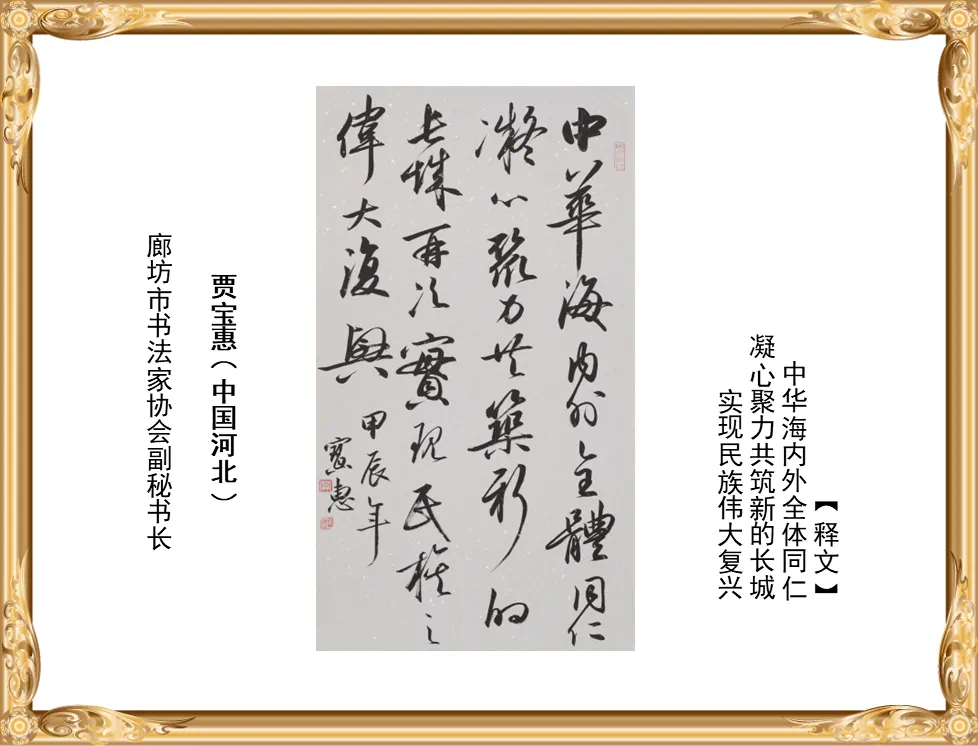 【释文】
中华海内外全体同仁
凝心聚力共筑新的长城
实现民族伟大复兴
中華海内外全體同仁
凝心聚力共築新的
長城再次實現民族之
偉大復興
甲辰年
寶惠
贾宝惠（中国河北）
廊坊市书法家协会副秘书长